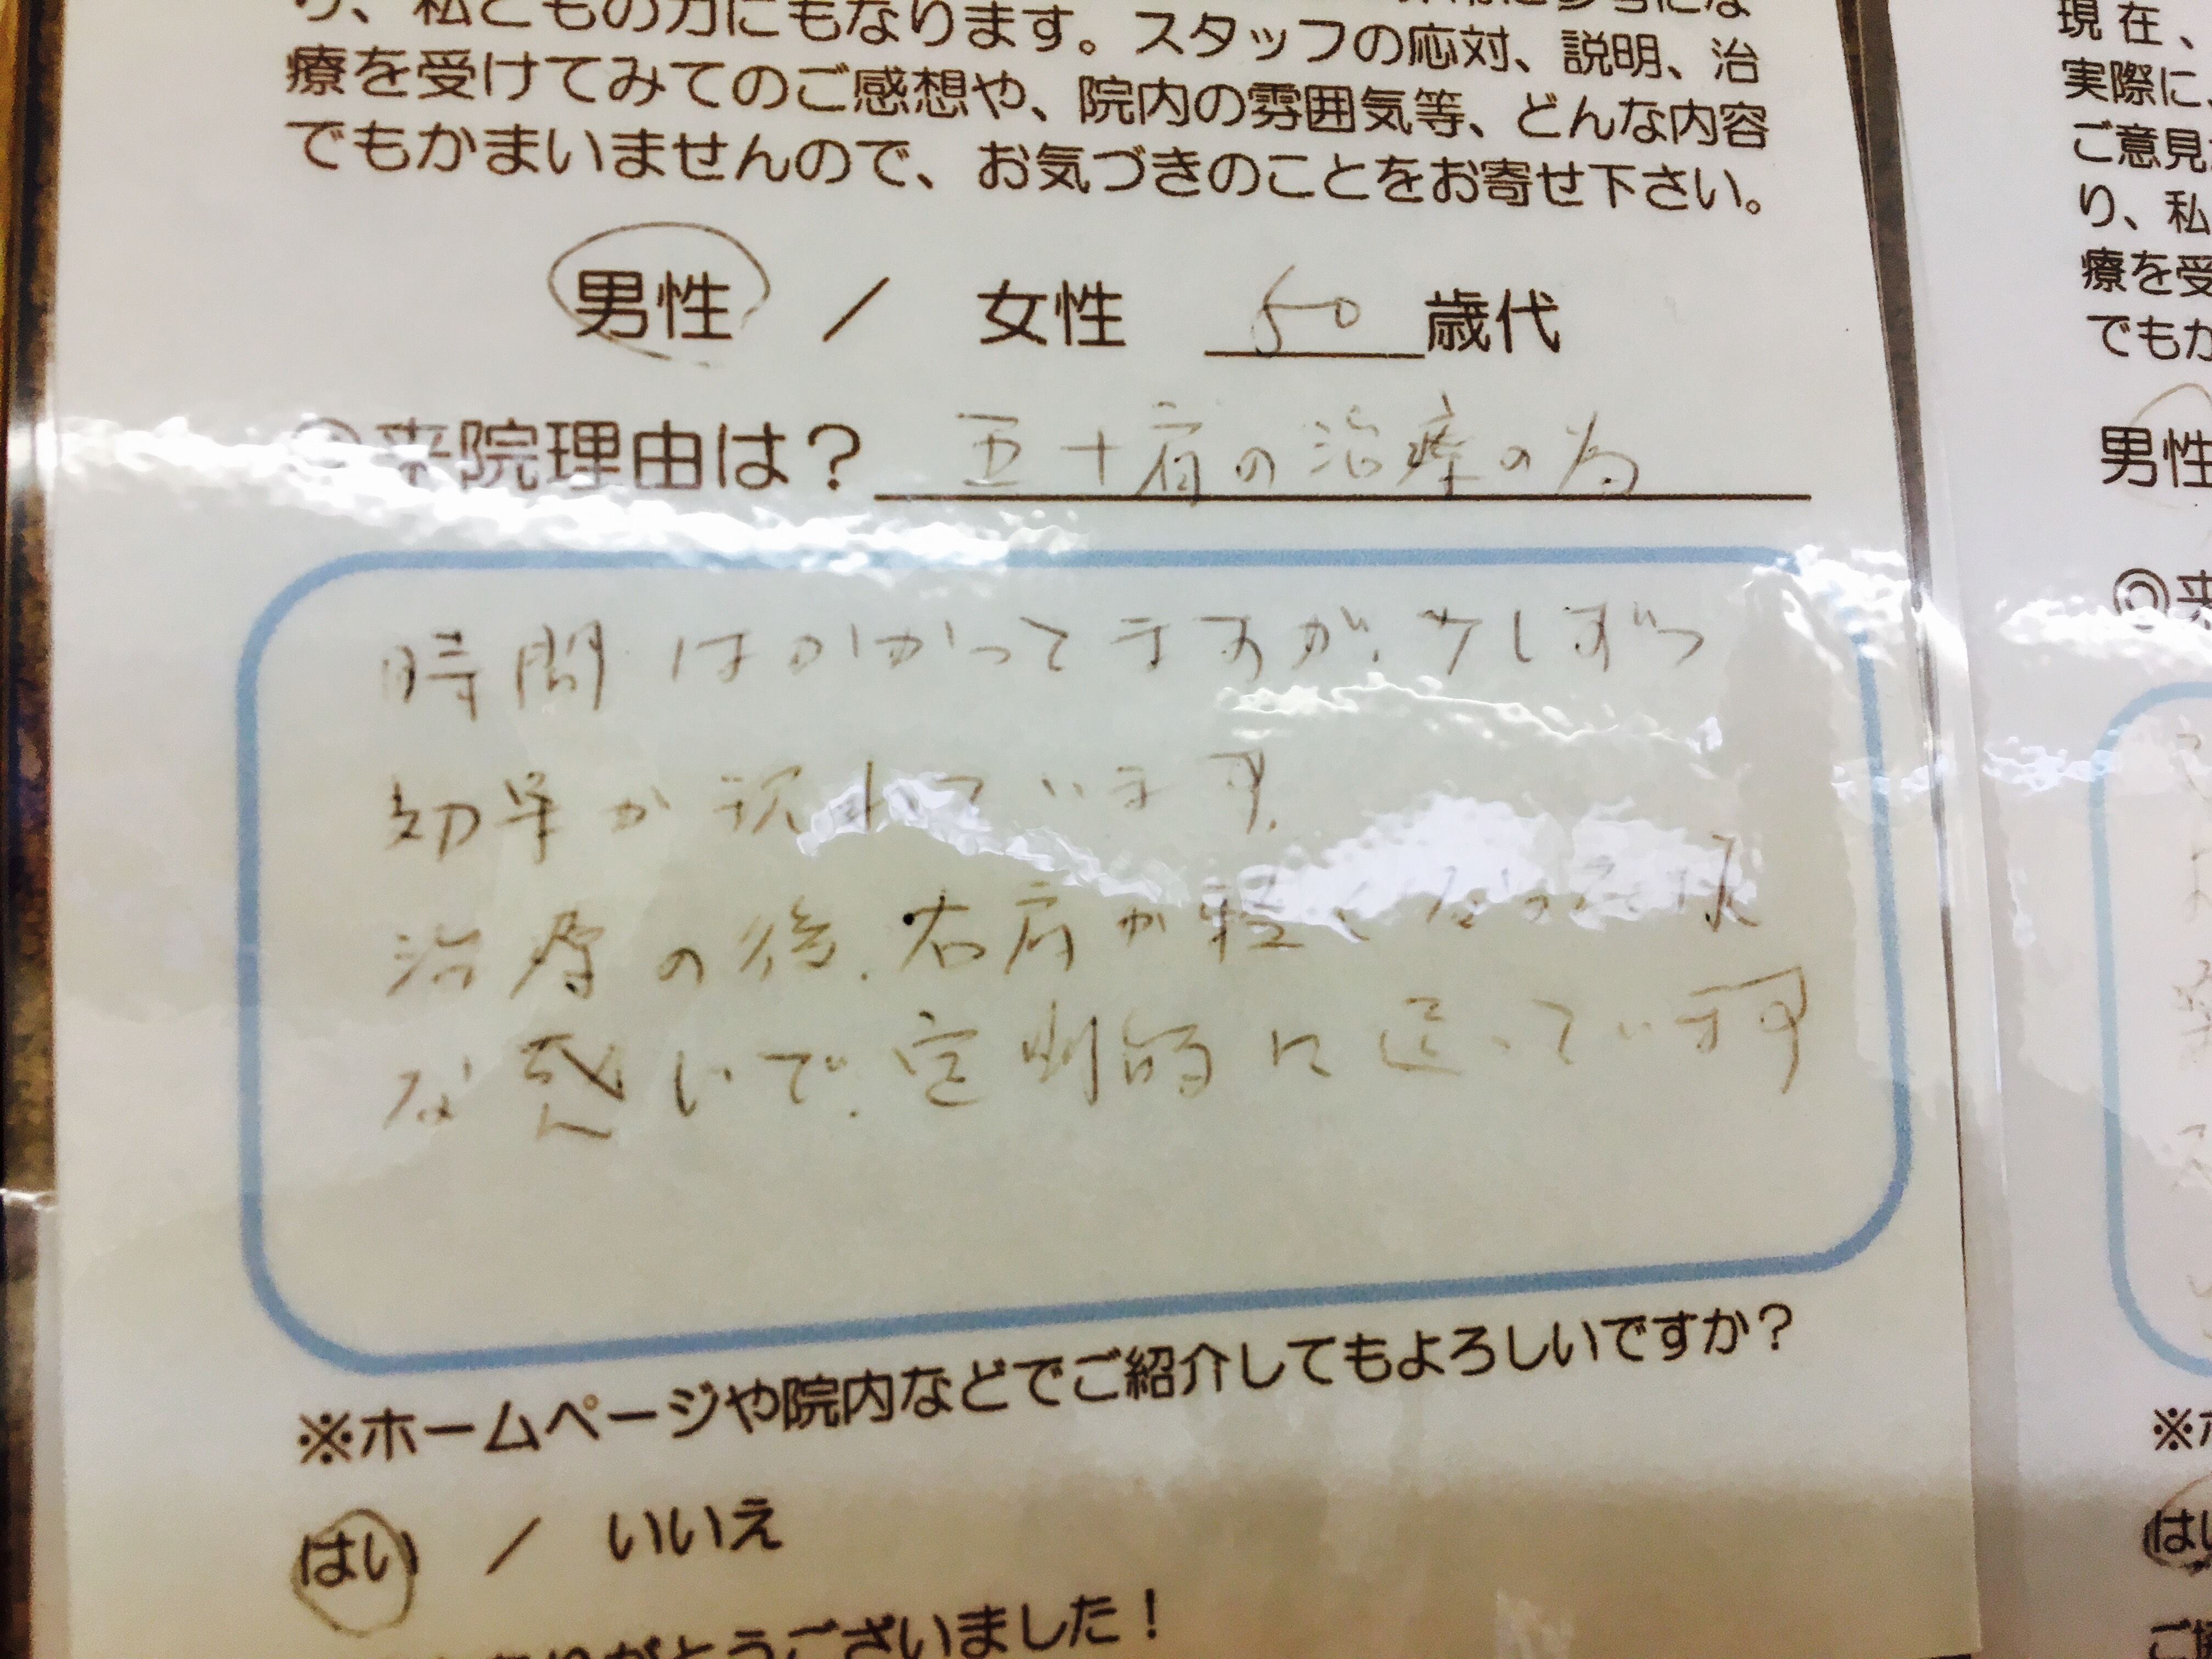 り、私どもの力にもなります。スタッフの応対、説明、治
療を受けてみてのご感想や、院内の雰囲気等、どんな内容
でもかまいませんので、お気づきのことをお寄せ下さい。
男性 / 女性 50 歳代
◎来院理由は? 五十肩の治療の為
時間はかかってますが、少しずつ
効果が現れています。
治療の後、右肩が軽くなった様
な感じで、定期的に通っています
※ホームページや院内などでご紹介してもよろしいですか?
はい / いいえ
ありがとうございました!
現在、
実際に、
ご意見
り、私
療を受
でもか
男性
◎来
※ホ
はい